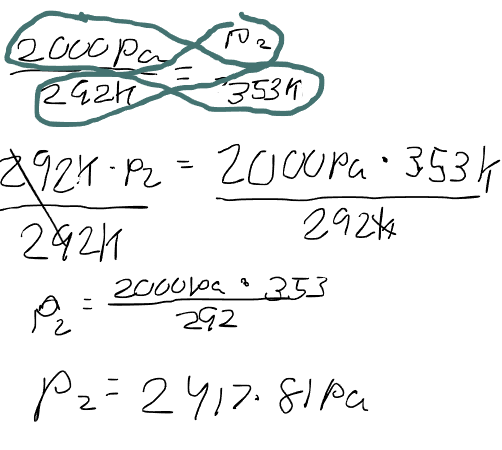 2000pa / 292k = p2 / 353k
292k · p2 / 292k = 2000pa · 353k / 292k
p2 = 2000pa · 353 / 292
p2 = 2417.81pa